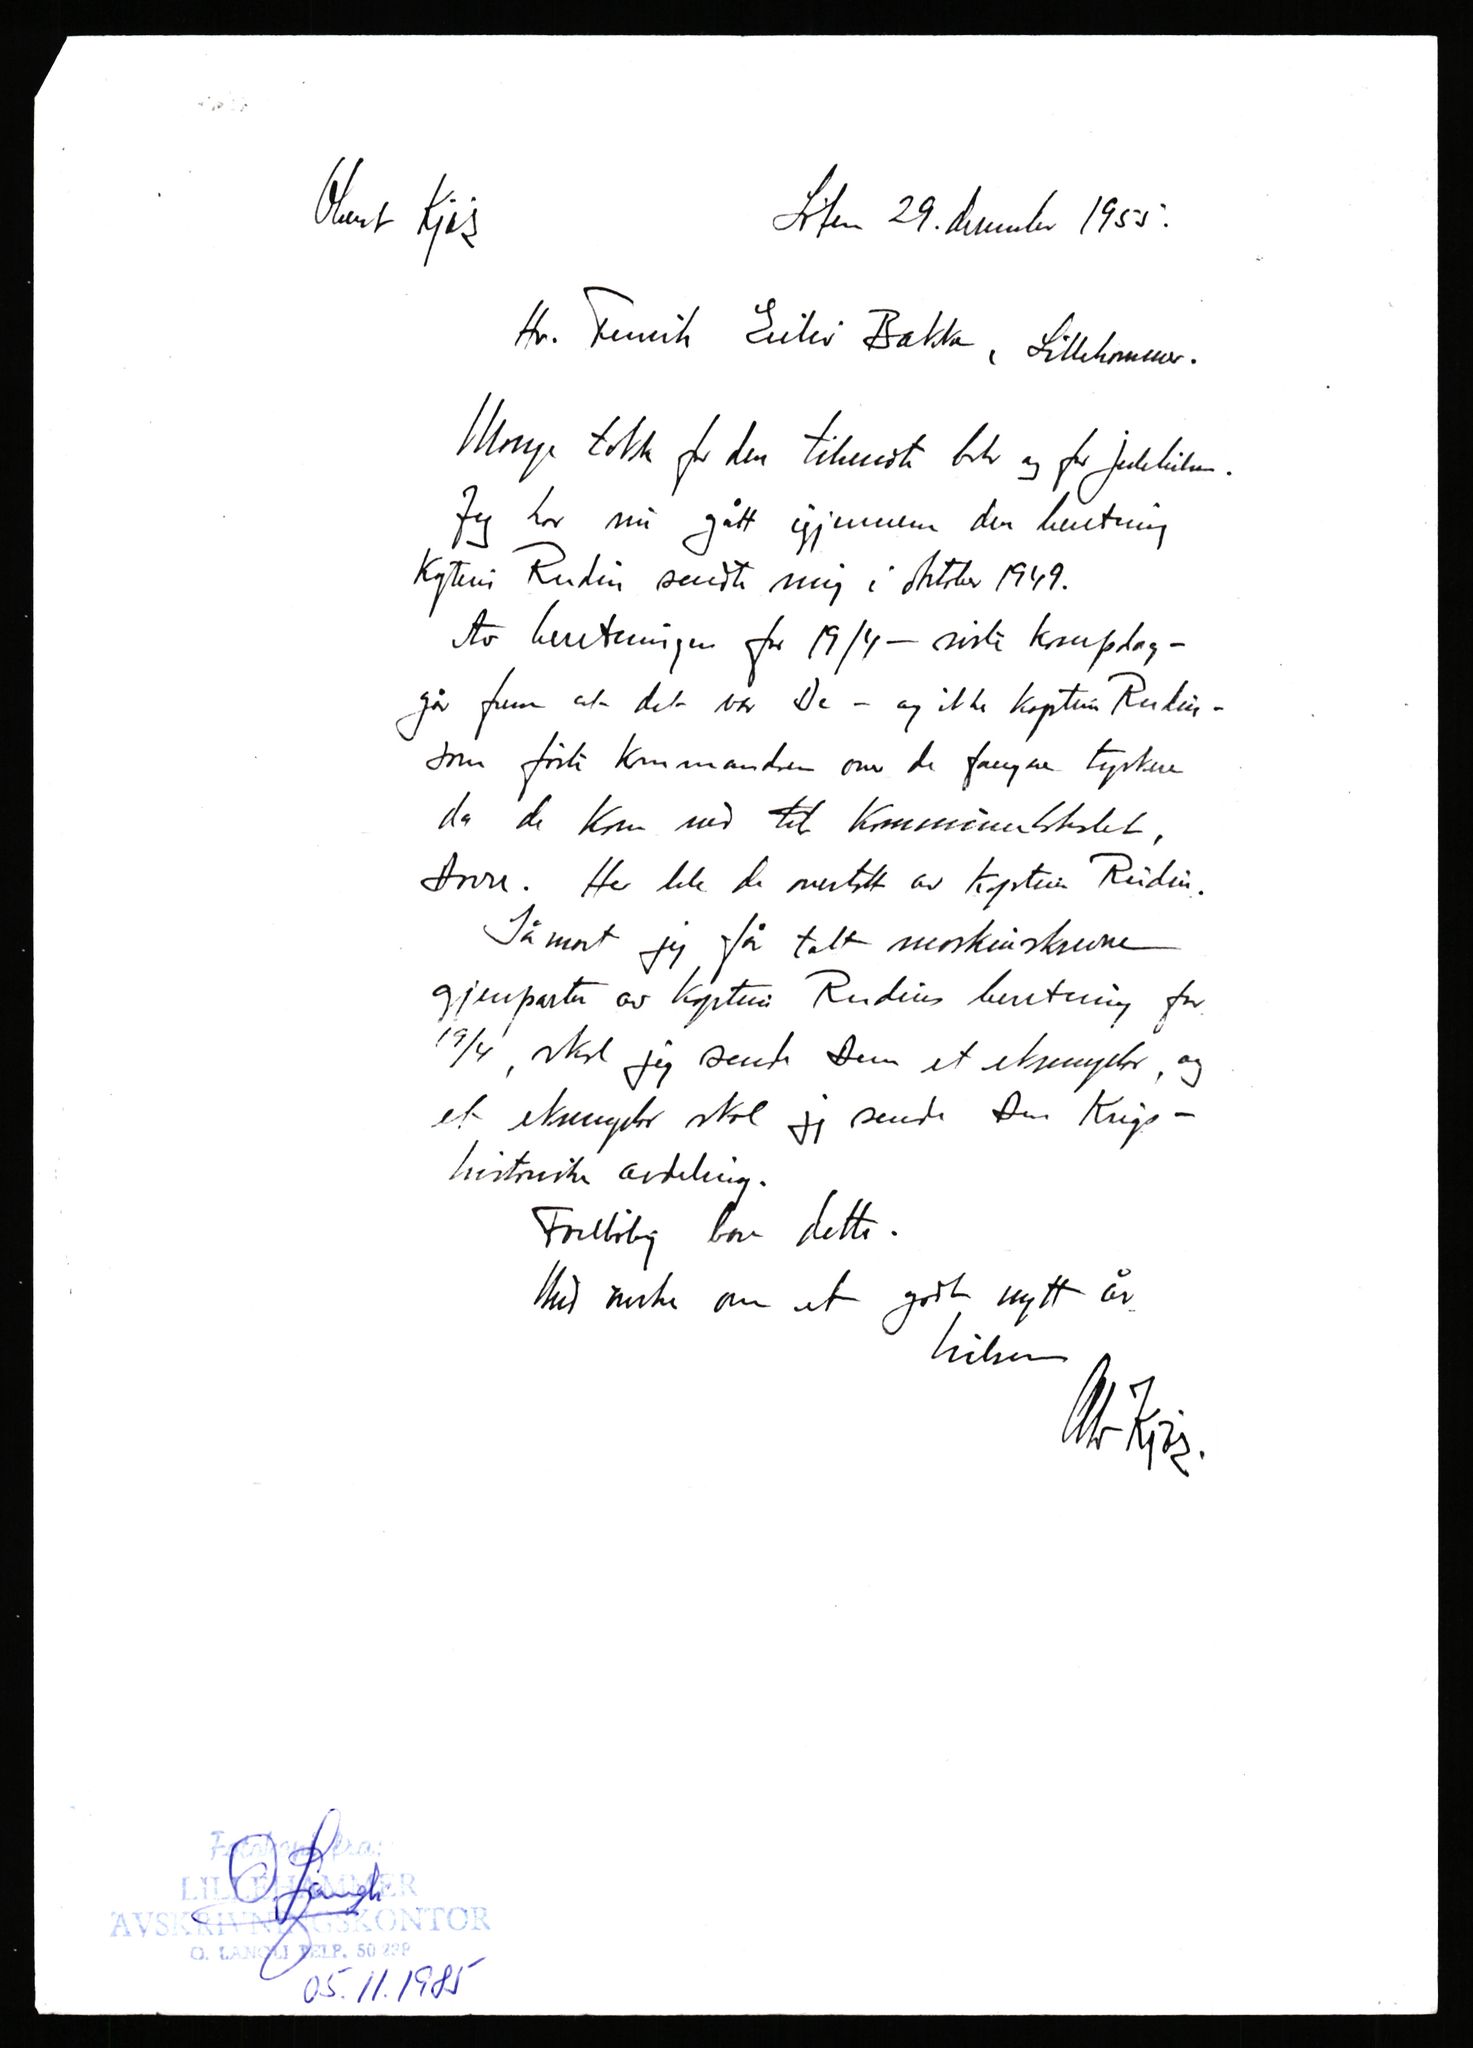 Oberst Kjøs
Løten 29. desember 1955.
Hr. Fenrik Eiliv Bakke, Lillehammer.
Mange takk for den tilsendte bok og for julehilsen.
Jeg har nu gått igjennem den beretning
Kaptein Rudin sendte mig i oktober 1949.
Av beretningen for 19/4 – siste kampdag –
går frem at det var De – og ikke kaptein Rudin –
som førte kommandoen over de fangne tyskere
da de kom ned til Kommunelokalet,
Dovre. Her ble de overtatt av kaptein Rudin.
Så snart jeg får tatt maskinskrevne
gjenparter av kaptein Rudins beretning for
19/4, skal jeg sende Dem et eksemplar, og
et eksemplar skal jeg sende Den Krigs-
historiske avdeling.
Foreløbig bare dette.
Med ønske om et godt nytt år
hilsen
Kjøs.
Fotokopi fra:
LILLEHAMMER
AVSKRIVNINGSKONTOR
O. LANGLI TELF. 50
O. Langli
05.11.1985